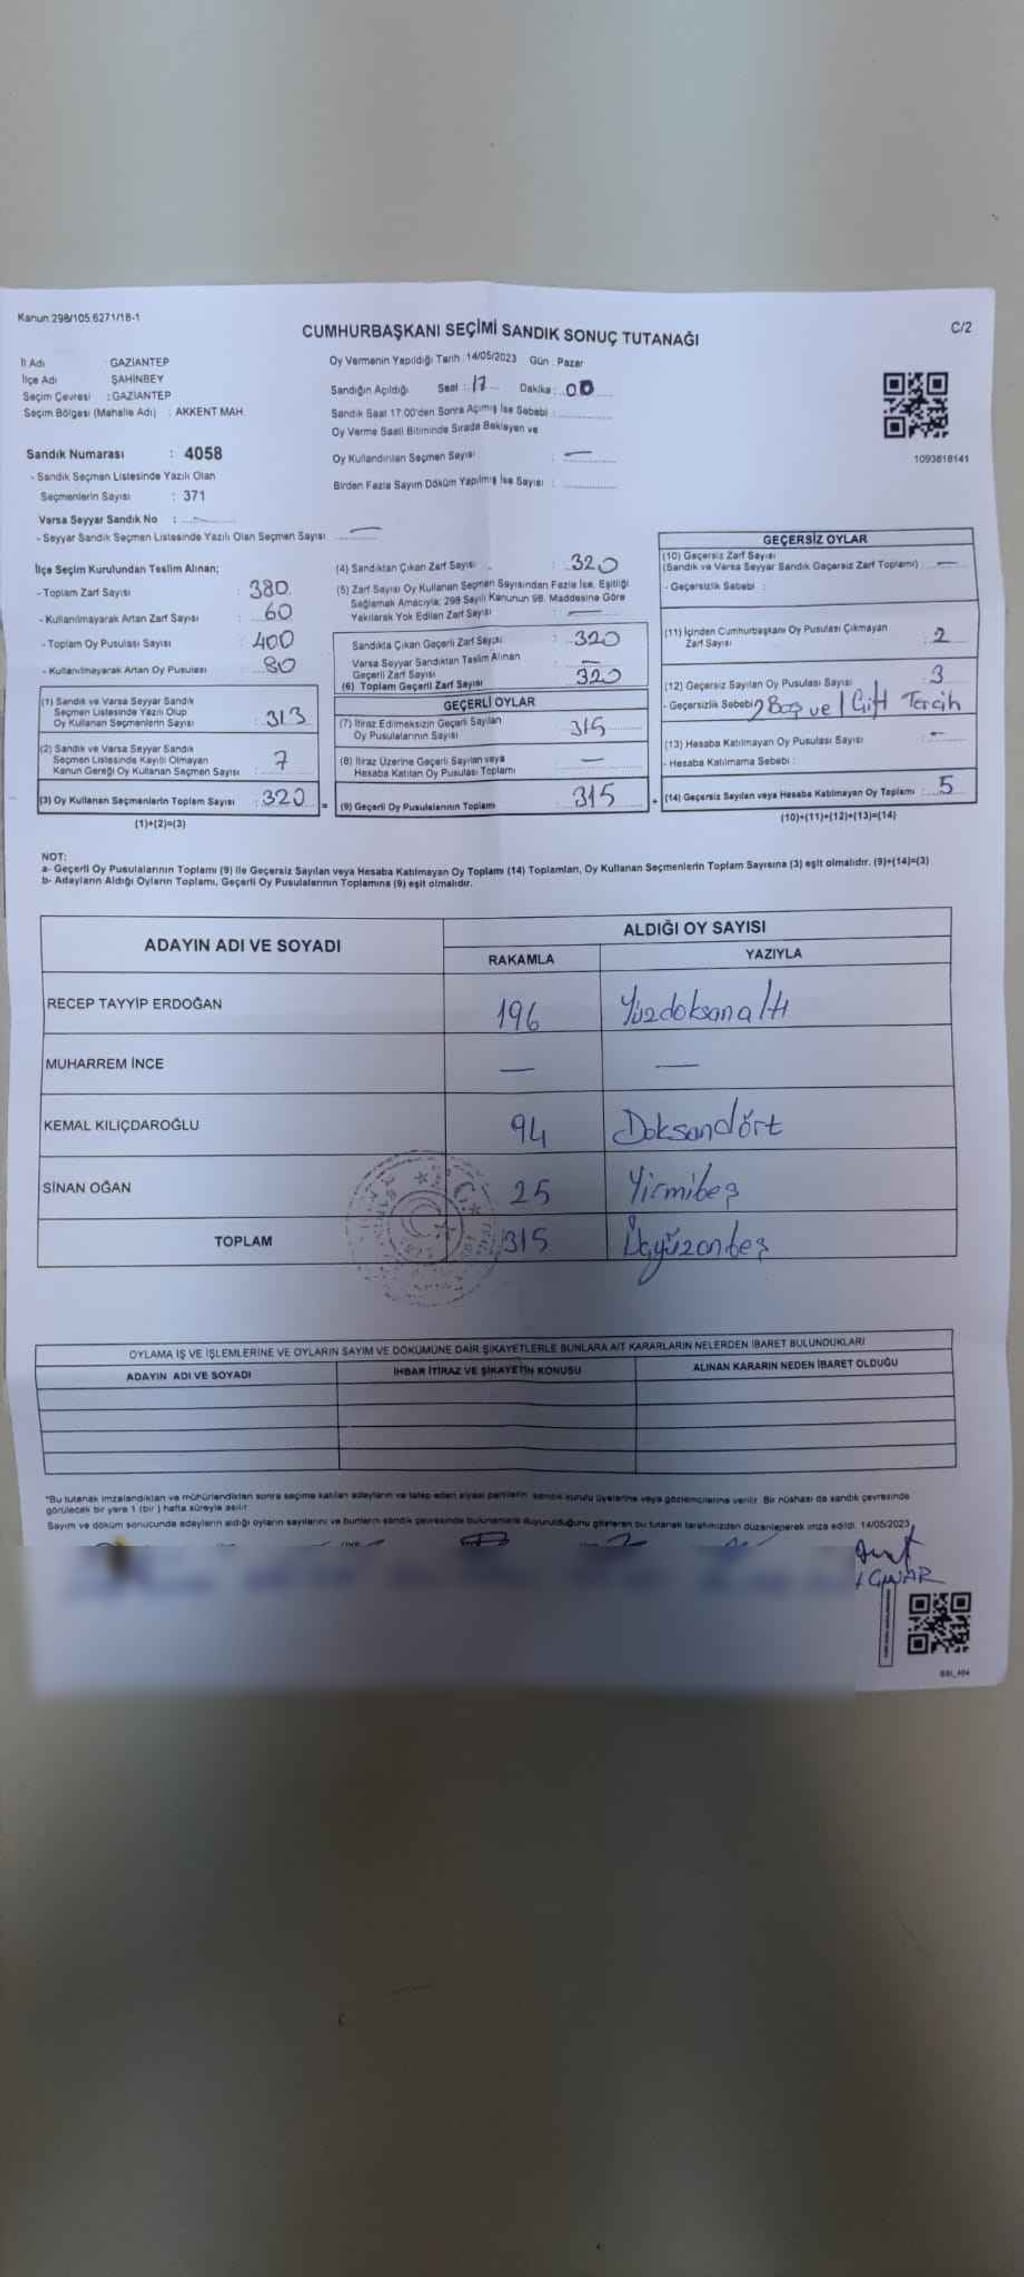 Kanun 298/105 6271/18-1
CUMHURBAŞKANI SEÇİMİ SANDIK SONUÇ TUTANAĞI
C/2
İl Adı GAZİANTEP
İlçe Adı ŞAHİNBEY
Seçim Çevresi : GAZİANTEP
Seçim Bölgesi (Mahalle Adı) : AKKENT MAH.
Oy Vermenin Yapıldığı Tarih : 14/05/2023 Gün : Pazar
Sandığın Açıldığı Saat : 17 Dakika : 00
Sandık Saat 17.00'den Sonra Açılmış İse Sebebi :
Oy Verme Saati Bitiminde Sırada Bekleyen ve
Oy Kullandırılan Seçmen Sayısı : —
Birden Fazla Sayım Döküm Yapılmış İse Sayısı :
1093818141
Sandık Numarası : 4058
- Sandık Seçmen Listesinde Yazılı Olan
Seçmenlerin Sayısı : 371
Varsa Seyyar Sandık No :
- Seyyar Sandık Seçmen Listesinde Yazılı Olan Seçmen Sayısı —
İlçe Seçim Kurulundan Teslim Alınan;
- Toplam Zarf Sayısı : 380
- Kullanılmayarak Artan Zarf Sayısı : 60
- Toplam Oy Pusulası Sayısı : 400
- Kullanılmayarak Artan Oy Pusulası : 80
(1) Sandık ve Varsa Seyyar Sandık
Seçmen Listesinde Yazılı Olup
Oy Kullanan Seçmenlerin Sayısı : 313
(2) Sandık ve Varsa Seyyar Sandık
Seçmen Listesinde Kayıtlı Olmayan
Kanun Gereği Oy Kullanan Seçmen Sayısı : 7
(3) Oy Kullanan Seçmenlerin Toplam Sayısı : 320 =
(1)+(2)=(3)
(4) Sandıktan Çıkan Zarf Sayısı : 320
(5) Zarf Sayısı Oy Kullanan Seçmen Sayısından Fazla İse, Eşitliği
Sağlamak Amacıyla; 298 Sayılı Kanunun 98. Maddesine Göre
Yakılarak Yok Edilen Zarf Sayısı : —
Sandıkta Çıkan Geçerli Zarf Sayısı : 320
Varsa Seyyar Sandıktan Teslim Alınan
Geçerli Zarf Sayısı —
(6) Toplam Geçerli Zarf Sayısı 320
GEÇERLİ OYLAR
(7) İtiraz Edilmeksizin Geçerli Sayılan
Oy Pusulalarının Sayısı 315
(8) İtiraz Üzerine Geçerli Sayılan veya
Hesaba Katılan Oy Pusulası Toplamı —
(9) Geçerli Oy Pusulalarının Toplamı 315 +
GEÇERSİZ OYLAR
(10) Geçersiz Zarf Sayısı
(Sandık ve Varsa Seyyar Sandık Geçersiz Zarf Toplamı) : —
- Geçersizlik Sebebi :
(11) İçinden Cumhurbaşkanı Oy Pusulası Çıkmayan
Zarf Sayısı 2
(12) Geçersiz Sayılan Oy Pusulası Sayısı 3
- Geçersizlik Sebebi 2 Boş ve 1 Çift Tercih
(13) Hesaba Katılmayan Oy Pusulası Sayısı —
- Hesaba Katılmama Sebebi :
(14) Geçersiz Sayılan veya Hesaba Katılmayan Oy Toplamı : 5
(10)+(11)+(12)+(13)=(14)
NOT:
a- Geçerli Oy Pusulalarının Toplamı (9) ile Geçersiz Sayılan veya Hesaba Katılmayan Oy Toplamı (14) Toplamları, Oy Kullanan Seçmenlerin Toplam Sayısına (3) eşit olmalıdır. (9)+(14)=(3)
b- Adayların Aldığı Oyların Toplamı, Geçerli Oy Pusulalarının Toplamına (9) eşit olmalıdır.
ADAYIN ADI VE SOYADI
ALDIĞI OY SAYISI
RAKAMLA YAZIYLA
RECEP TAYYİP ERDOĞAN 196 Yüzdoksanaltı
MUHARREM İNCE — —
KEMAL KILIÇDAROĞLU 94 Doksandört
SİNAN OĞAN 25 Yirmibeş
TOPLAM 315 Üçyüzonbeş
OYLAMA İŞ VE İŞLEMLERİNE VE OYLARIN SAYIM VE DÖKÜMÜNE DAİR ŞİKAYETLERLE BUNLARA AİT KARARLARIN NELERDEN İBARET BULUNDUKLARI
ADAYIN ADI VE SOYADI İHBAR İTİRAZ VE ŞİKAYETİN KONUSU ALINAN KARARIN NEDEN İBARET OLDUĞU
"Bu tutanak imzalandıktan ve mühürlendikten sonra seçime katılan adayların ve talep eden siyasi partilerin sandık kurulu üyelerine veya gözlemcilerine verilir. Bir nüshası da sandık çevresinde
görülecek bir yere 1 (bir) hafta süreyle asılır.
Sayım ve döküm sonucunda adayların aldığı oyların sayılarını ve bunların sandık çevresinde bulunanlara duyurulduğunu gösteren bu tutanak tarafımızdan düzenlenerek imza edildi. 14/05/2023